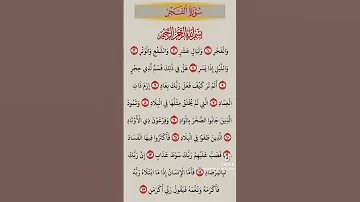 سُورَةُ الفَجْرِ
بِسْمِ اللَّهِ الرَّحْمَنِ الرَّحِيمِ
وَالْفَجْرِ ۝ وَلَيَالٍ عَشْرٍ ۝ وَالشَّفْعِ وَالْوَتْرِ ۝
وَاللَّيْلِ إِذَا يَسْرِ ۝ هَلْ فِي ذَلِكَ قَسَمٌ لِّذِي حِجْرٍ
۝ أَلَمْ تَرَ كَيْفَ فَعَلَ رَبُّكَ بِعَادٍ ۝ إِرَمَ ذَاتِ
الْعِمَادِ ۝ الَّتِي لَمْ يُخْلَقْ مِثْلُهَا فِي الْبِلَادِ ۝ وَثَمُودَ
الَّذِينَ جَابُوا الصَّخْرَ بِالْوَادِ ۝ وَفِرْعَوْنَ ذِي الْأَوْتَادِ
۝ الَّذِينَ طَغَوْا فِي الْبِلَادِ ۝ فَأَكْثَرُوا فِيهَا الْفَسَادَ
۝ فَصَبَّ عَلَيْهِمْ رَبُّكَ سَوْطَ عَذَابٍ ۝ إِنَّ رَبَّكَ
لَبِالْمِرْصَادِ ۝ فَأَمَّا الْإِنسَانُ إِذَا مَا ابْتَلَاهُ رَبُّهُ
فَأَكْرَمَهُ وَنَعَّمَهُ فَيَقُولُ رَبِّي أَكْرَمَنِ ۝